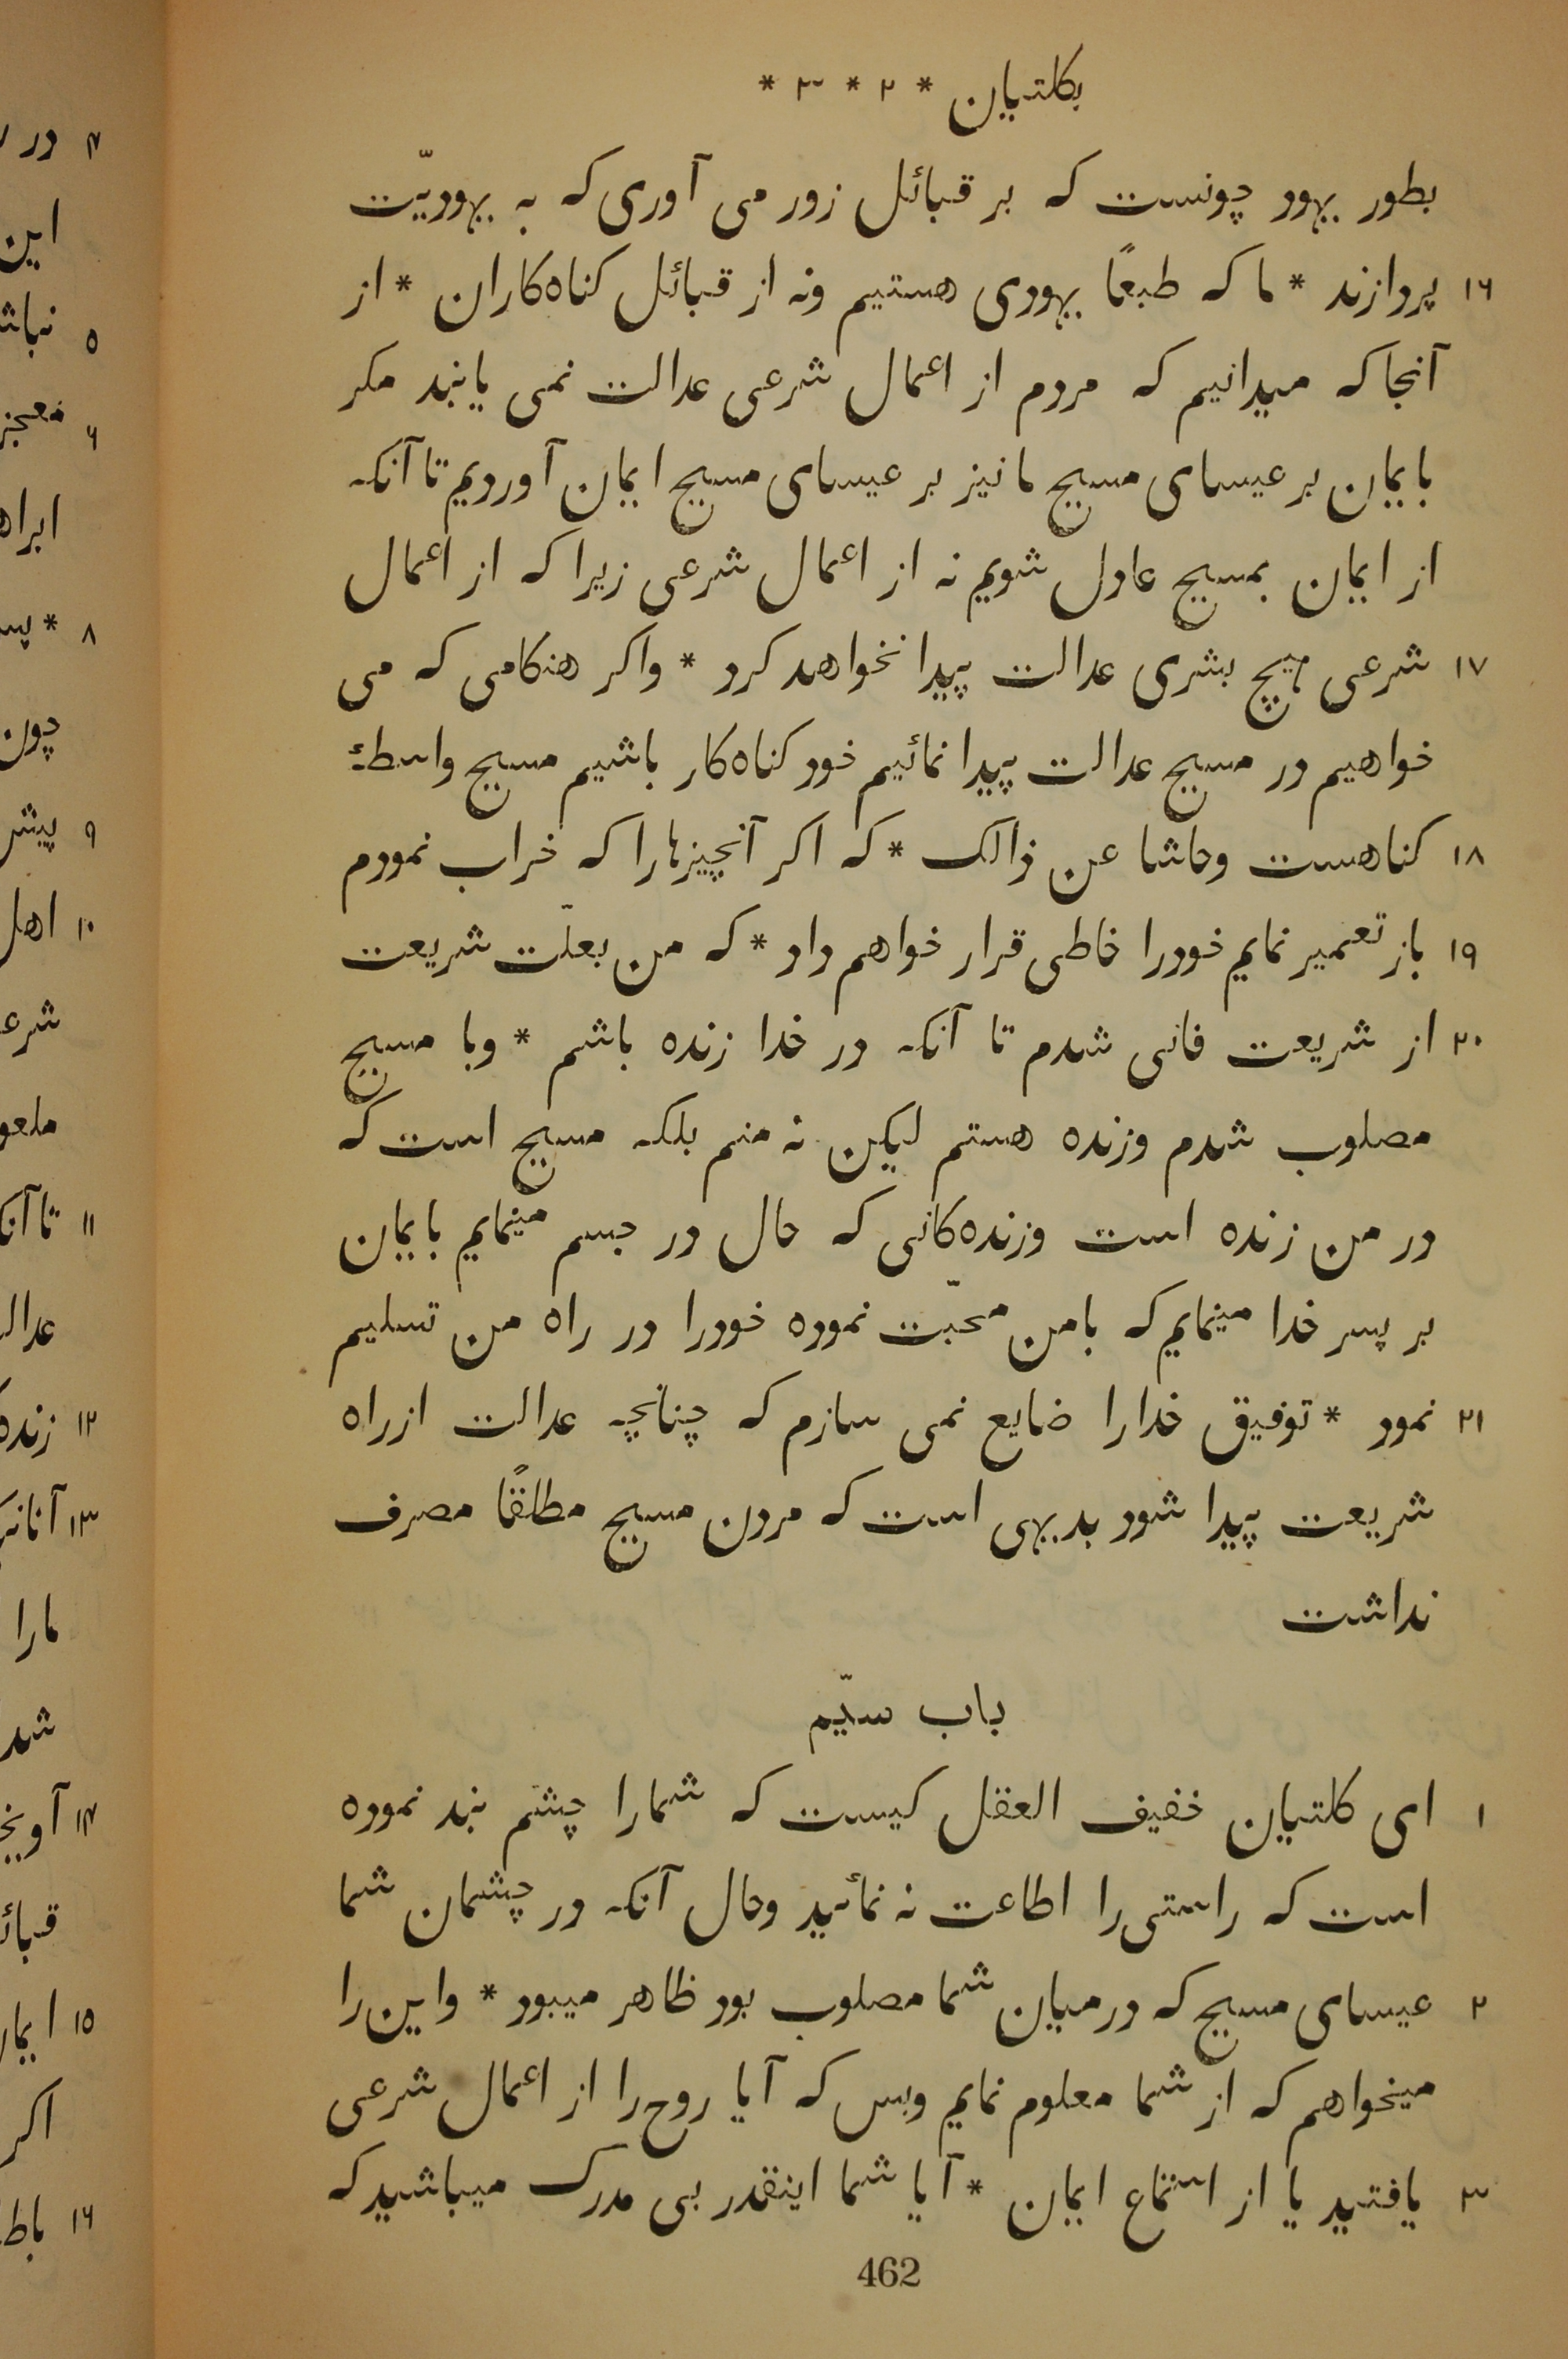 بکلتیان * ۲ * ۳ *
بطور یهود چونست که بر قبائل زور می آوری که به یهودیّت
۱۶ پردازند * ما که طبعًا یهودی هستیم ونه از قبائل کناه‌کاران * از
آنجا که میدانیم که مردم از اعمال شرعی عدالت نمی یابند مکر
بایمان بر عیسای مسیح ما نیز بر عیسای مسیح ایمان آوردیم تا آنکه
از ایمان بمسیح عادل شویم نه از اعمال شرعی زیرا که از اعمال
۱۷ شرعی هیچ بشری عدالت پیدا نخواهد کرد * واکر هنکامی که می
خواهیم در مسیح عدالت پیدا نمائیم خود کناه‌کار باشیم مسیح واسطهٔ
۱۸ کناهست وحاشا عن ذالک * که اکر آنچیزها را که خراب نمودم
۱۹ باز تعمیر نمایم خودرا خاطی قرار خواهم داد * که من بعلّت شریعت
۲۰ از شریعت فانی شدم تا آنکه در خدا زنده باشم * وبا مسیح
مصلوب شدم وزنده هستم لیکن نه منم بلکه مسیح است که
در من زنده است وزنده‌کانی که حال در جسم مینمایم بایمان
بر پسر خدا مینمایم که بامن محبّت نموده خودرا در راه من تسلیم
۲۱ نمود * توفیق خدارا ضایع نمی سازم که چنانچه عدالت از راه
شریعت پیدا شود بدیهی است که مردن مسیح مطلقًا مصرف
نداشت
باب سیّم
۱ ای کلتیان خفیف العقل کیست که شمارا چشم بند نموده
است که راستی را اطاعت نه نمائید وحال آنکه در چشمان شما
۲ عیسای مسیح که درمیان شما مصلوب بود ظاهر میبود * واین را
میخواهم که از شما معلوم نمایم وبس که آیا روح را از اعمال شرعی
۳ یافتید یا از استماع ایمان * آیا شما اینقدر بی مدرک میباشید که
462